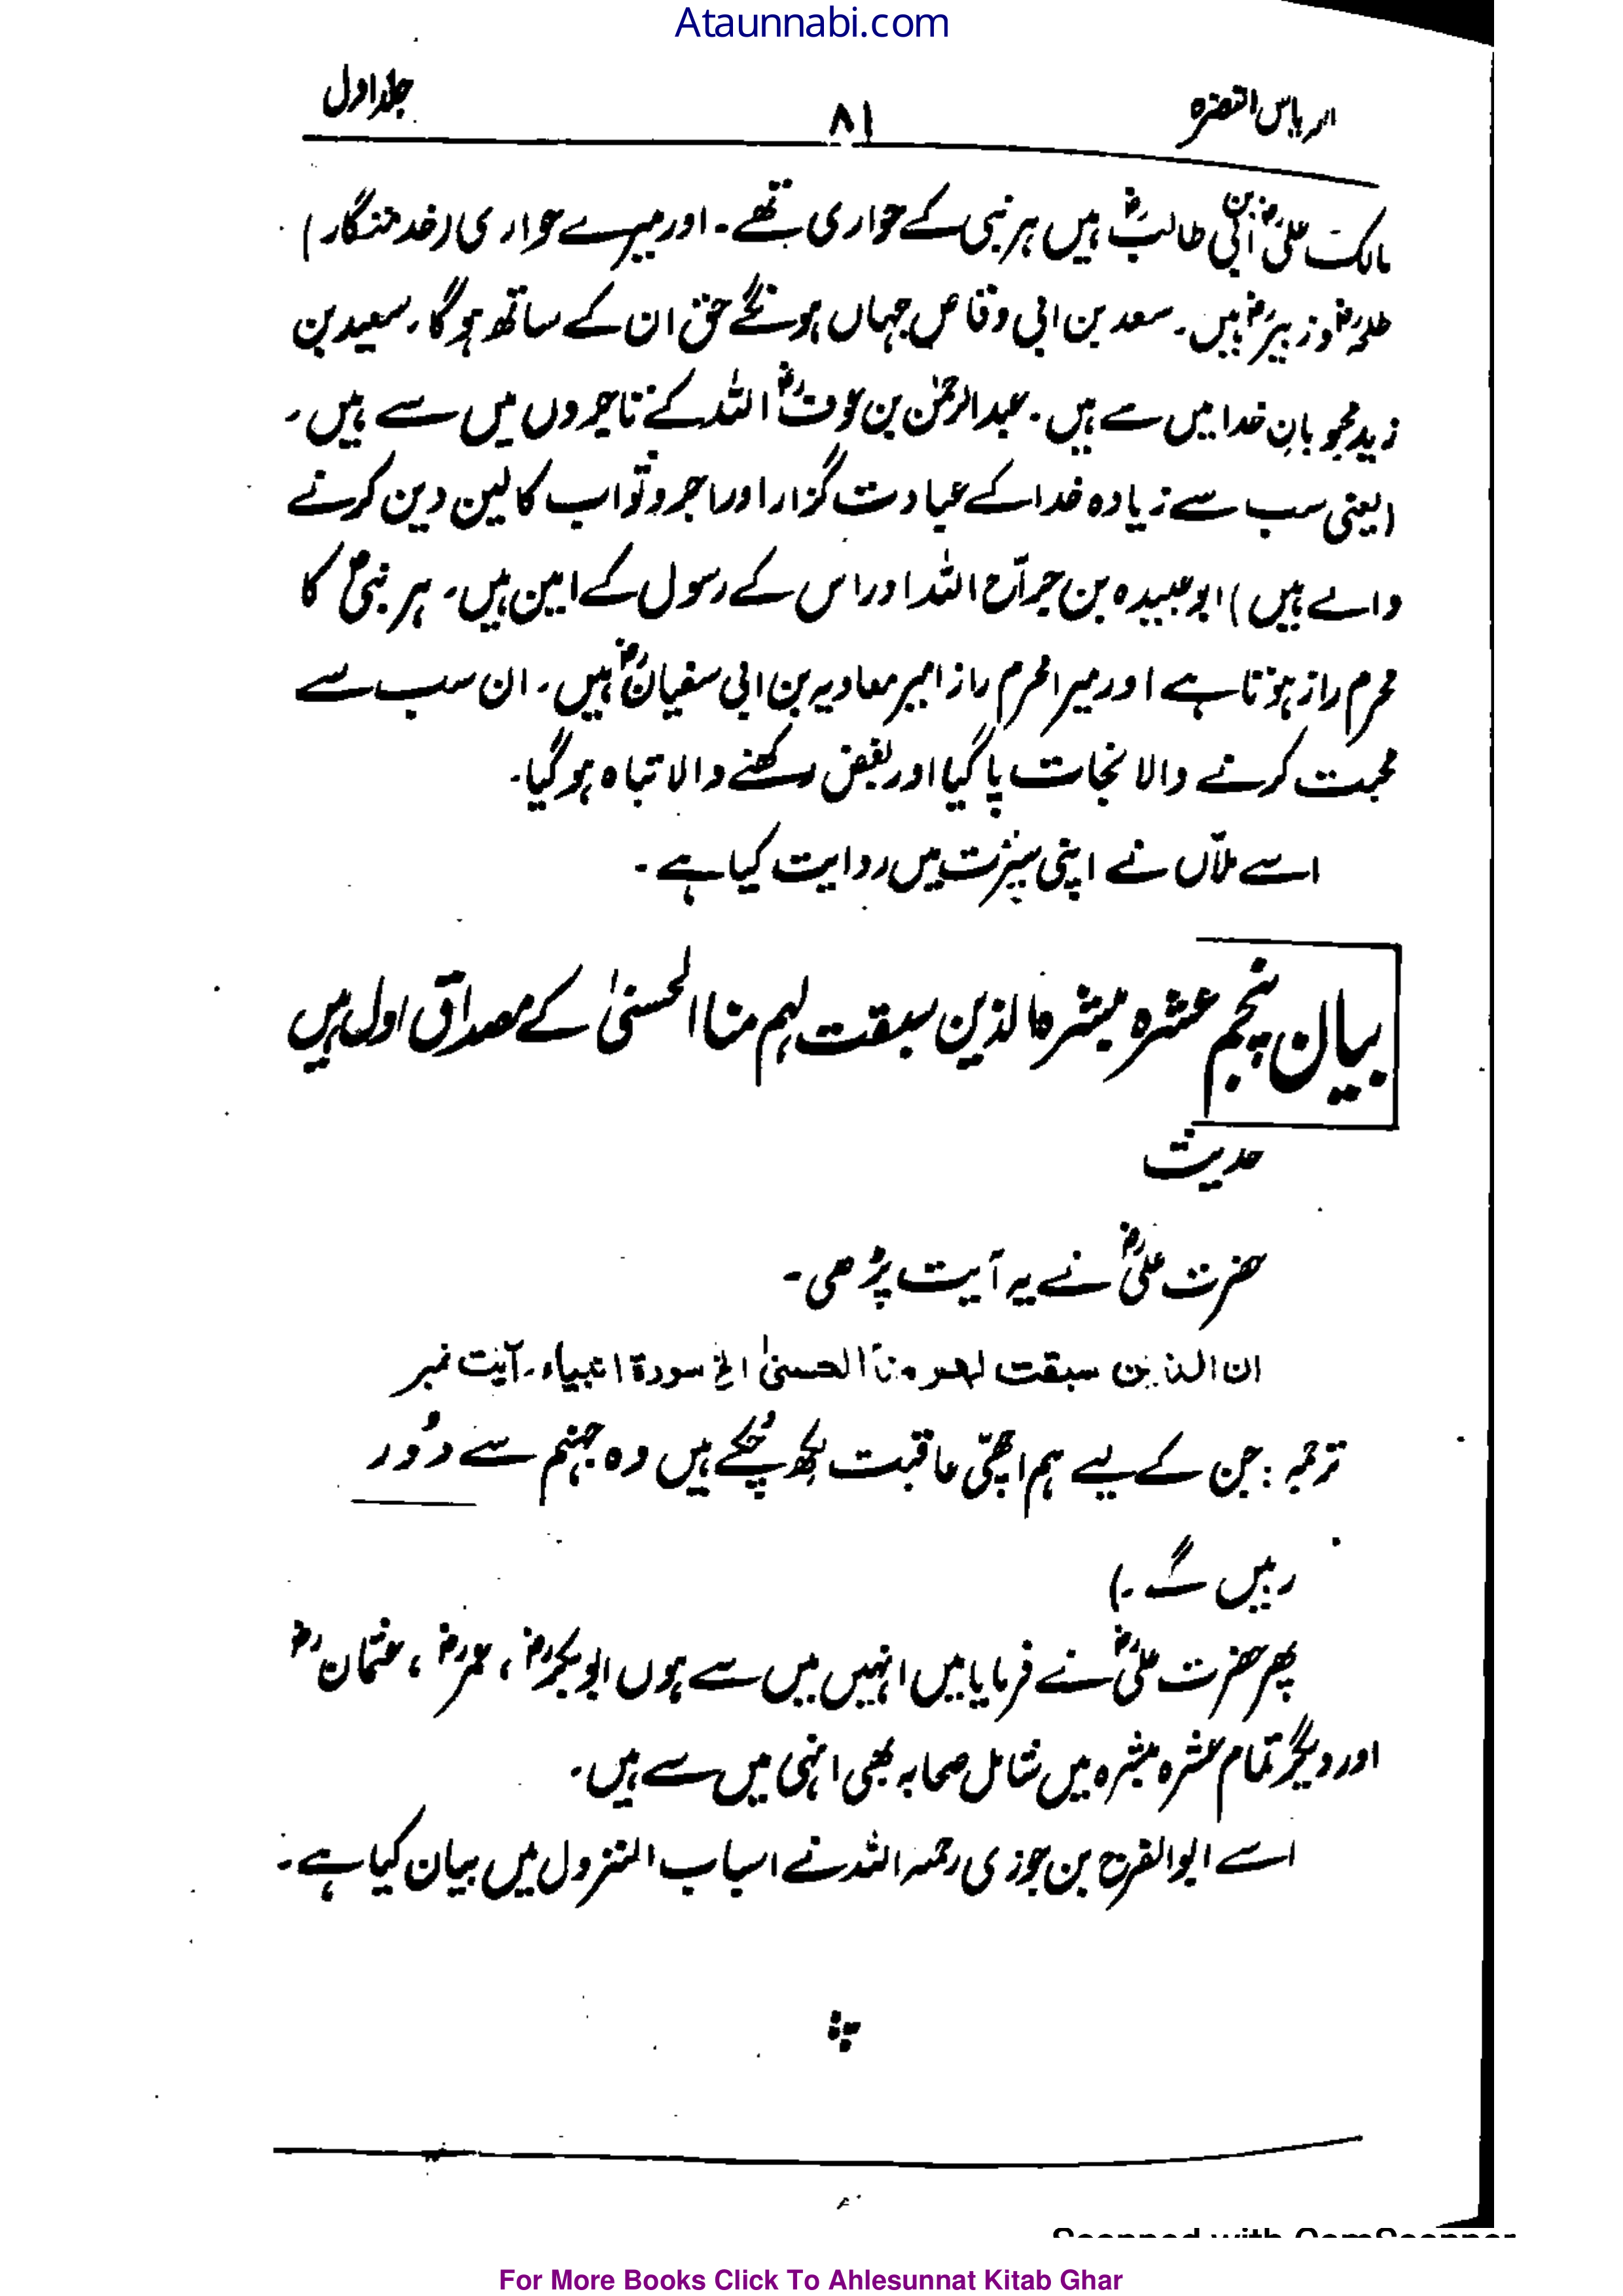 Ataunnabi.com
الریاض النضرہ ۸۱ جلد اول
مالک علیؓ بن ابی طالبؓ ہیں ہر نبی کے حواری تھے۔ اور میرے حواری (خدمتگار)
طلحہؓ و زبیرؓ ہیں۔ سعد بن ابی وقاص جہاں ہونگے حق ان کے ساتھ ہوگا۔ سعید بن
زید محبوبانِ خدا میں سے ہیں۔ عبدالرحمٰن بن عوفؓ اللہ کے تاجروں میں سے ہیں۔
(یعنی سب سے زیادہ خدا کے عبادت گزار اور اجر و ثواب کا لین دین کرنے
والے ہیں) ابو عبیدہ بن جراّح اللہ اور اس کے رسول کے امین ہیں۔ ہر نبیؑ کا
محرم راز ہوتا ہے اور میرا محرم راز امیر معاویہ بن ابی سفیانؓ ہیں۔ ان سب سے
محبت کرنے والا نجات پا گیا اور بغض رکھنے والا تباہ ہوگیا۔
اسے ملاّں نے اپنی سیرت میں روایت کیا ہے۔
بیان پنجم عشرہ مبشرہ الذین سبقت لہم منا الحسنیٰ کے مصداق اول ہیں
حدیث
حضرت علیؓ نے یہ آیت پڑھی۔
ان الذین سبقت لھم منا الحسنیٰ الخ سورۃ انبیاء۔ آیت نمبر
ترجمہ: جن کے لیے ہم اچھّی عاقبت لکھ چُکے ہیں وہ جہنم سے دُور
رہیں گے۔)
پھر حضرت علیؓ نے فرمایا میں انہیں میں سے ہوں ابوبکرؓ، عمرؓ، عثمانؓ
اور دیگر تمام عشرہ مبشرہ میں شامل صحابہ بھی انہی میں سے ہیں۔
اسے ابوالفرج بن جوزی رحمہ اللہ نے اسباب النزول میں بیان کیا ہے۔
Scanned with CamScanner
For More Books Click To Ahlesunnat Kitab Ghar